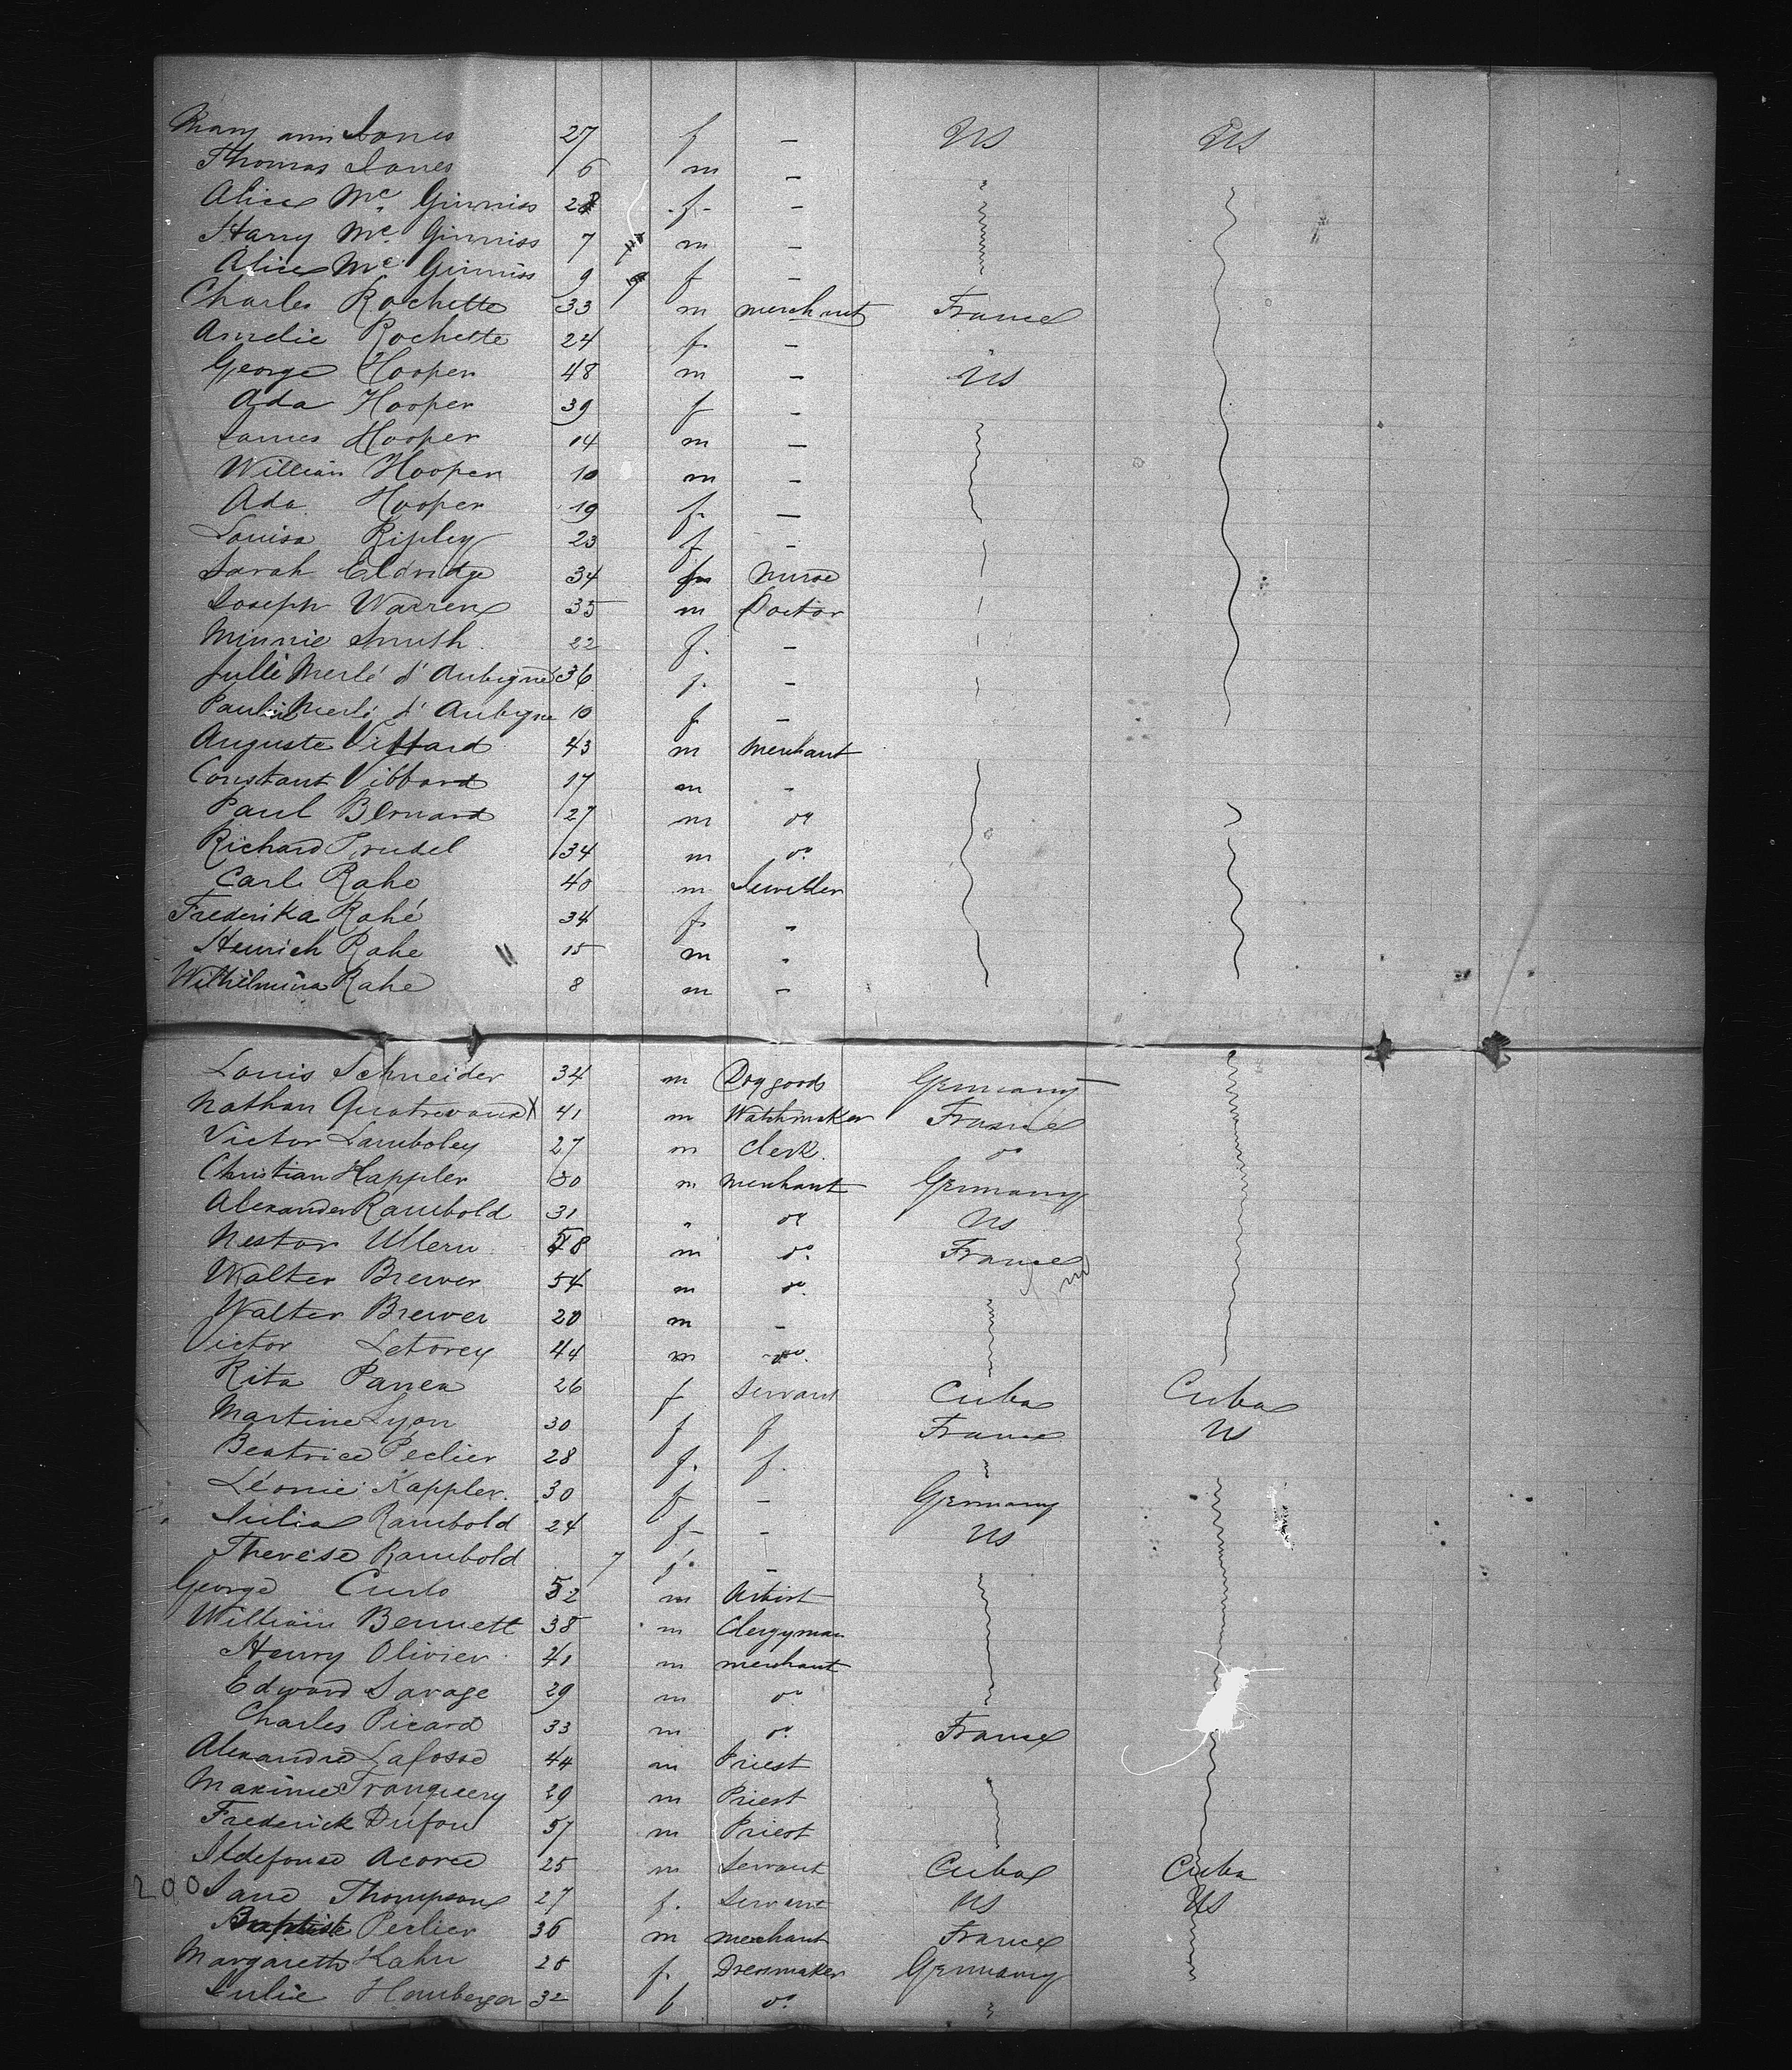 Mary ann Jones 27 f — US US
Thomas Jones 6 m —
Alice Mc Ginniss 28 f —
Harry Mc Ginniss 7 m —
Alice Mc Ginniss 9 f —
Charles Rochette 33 m merchant France
Amelie Rochette 24 f —
George Hooper 48 m — US
Ada Hooper 39 f —
James Hooper 14 m —
William Hooper 10 m —
Ada Hooper 19 f —
Louisa Ripley 23 f —
Sarah Eldridge 34 f Nurse
Joseph Warren 35 m Doctor
Minnie Smith 22 f —
Julie Merlé d'Aubigné 36 f —
Merlé d'Aubigne 10 f —
Auguste 43 m Merchant
Constant 17 m —
Paul Bernard 27 m do
Richard 34 m do
Carl Rahe 40 m
Frederika Rahé 34 f "
Heinrich Rahe 15 m "
Wilhelmina Rahe 8 m —
Louis Schneider 34 m Dry goods Germany
Nathan X 41 m Watchmaker France
Victor Lamboley 27 m Clerk do
Christian Kappler 30 m merchant Germany
Alexander Rambold 31 " do US
Nestor m do France
Walter Brewer 54 m do
Walter Brewer 20 m —
Victor Letorey 44 m do
Rita 26 f servant Cuba Cuba
Martine Lyon 30 f f France US
Beatrice Peclier 28 f. f.
Léonie Kappler 30 f — Germany
Julia Rambold 24 f — US
Therése Rambold 7 f —
George 52 m Artist
William Bennett 38 m Clergyman
Henry Olivier 41 m merchant
Edward Savage 29 m do
Charles Picard 33 m do France
Alexandre Lafosse 44 m Priest
Maxime 29 m Priest
Frederick 57 m Priest
Ildefonso 25 m Servant Cuba Cuba
200 Jane Thompson 27 f. Servant US US
Baptiste Peclier 36 m merchant France
Margareth Kahn 28 f. Dressmaker Germany
Julie Homberger 32 f do